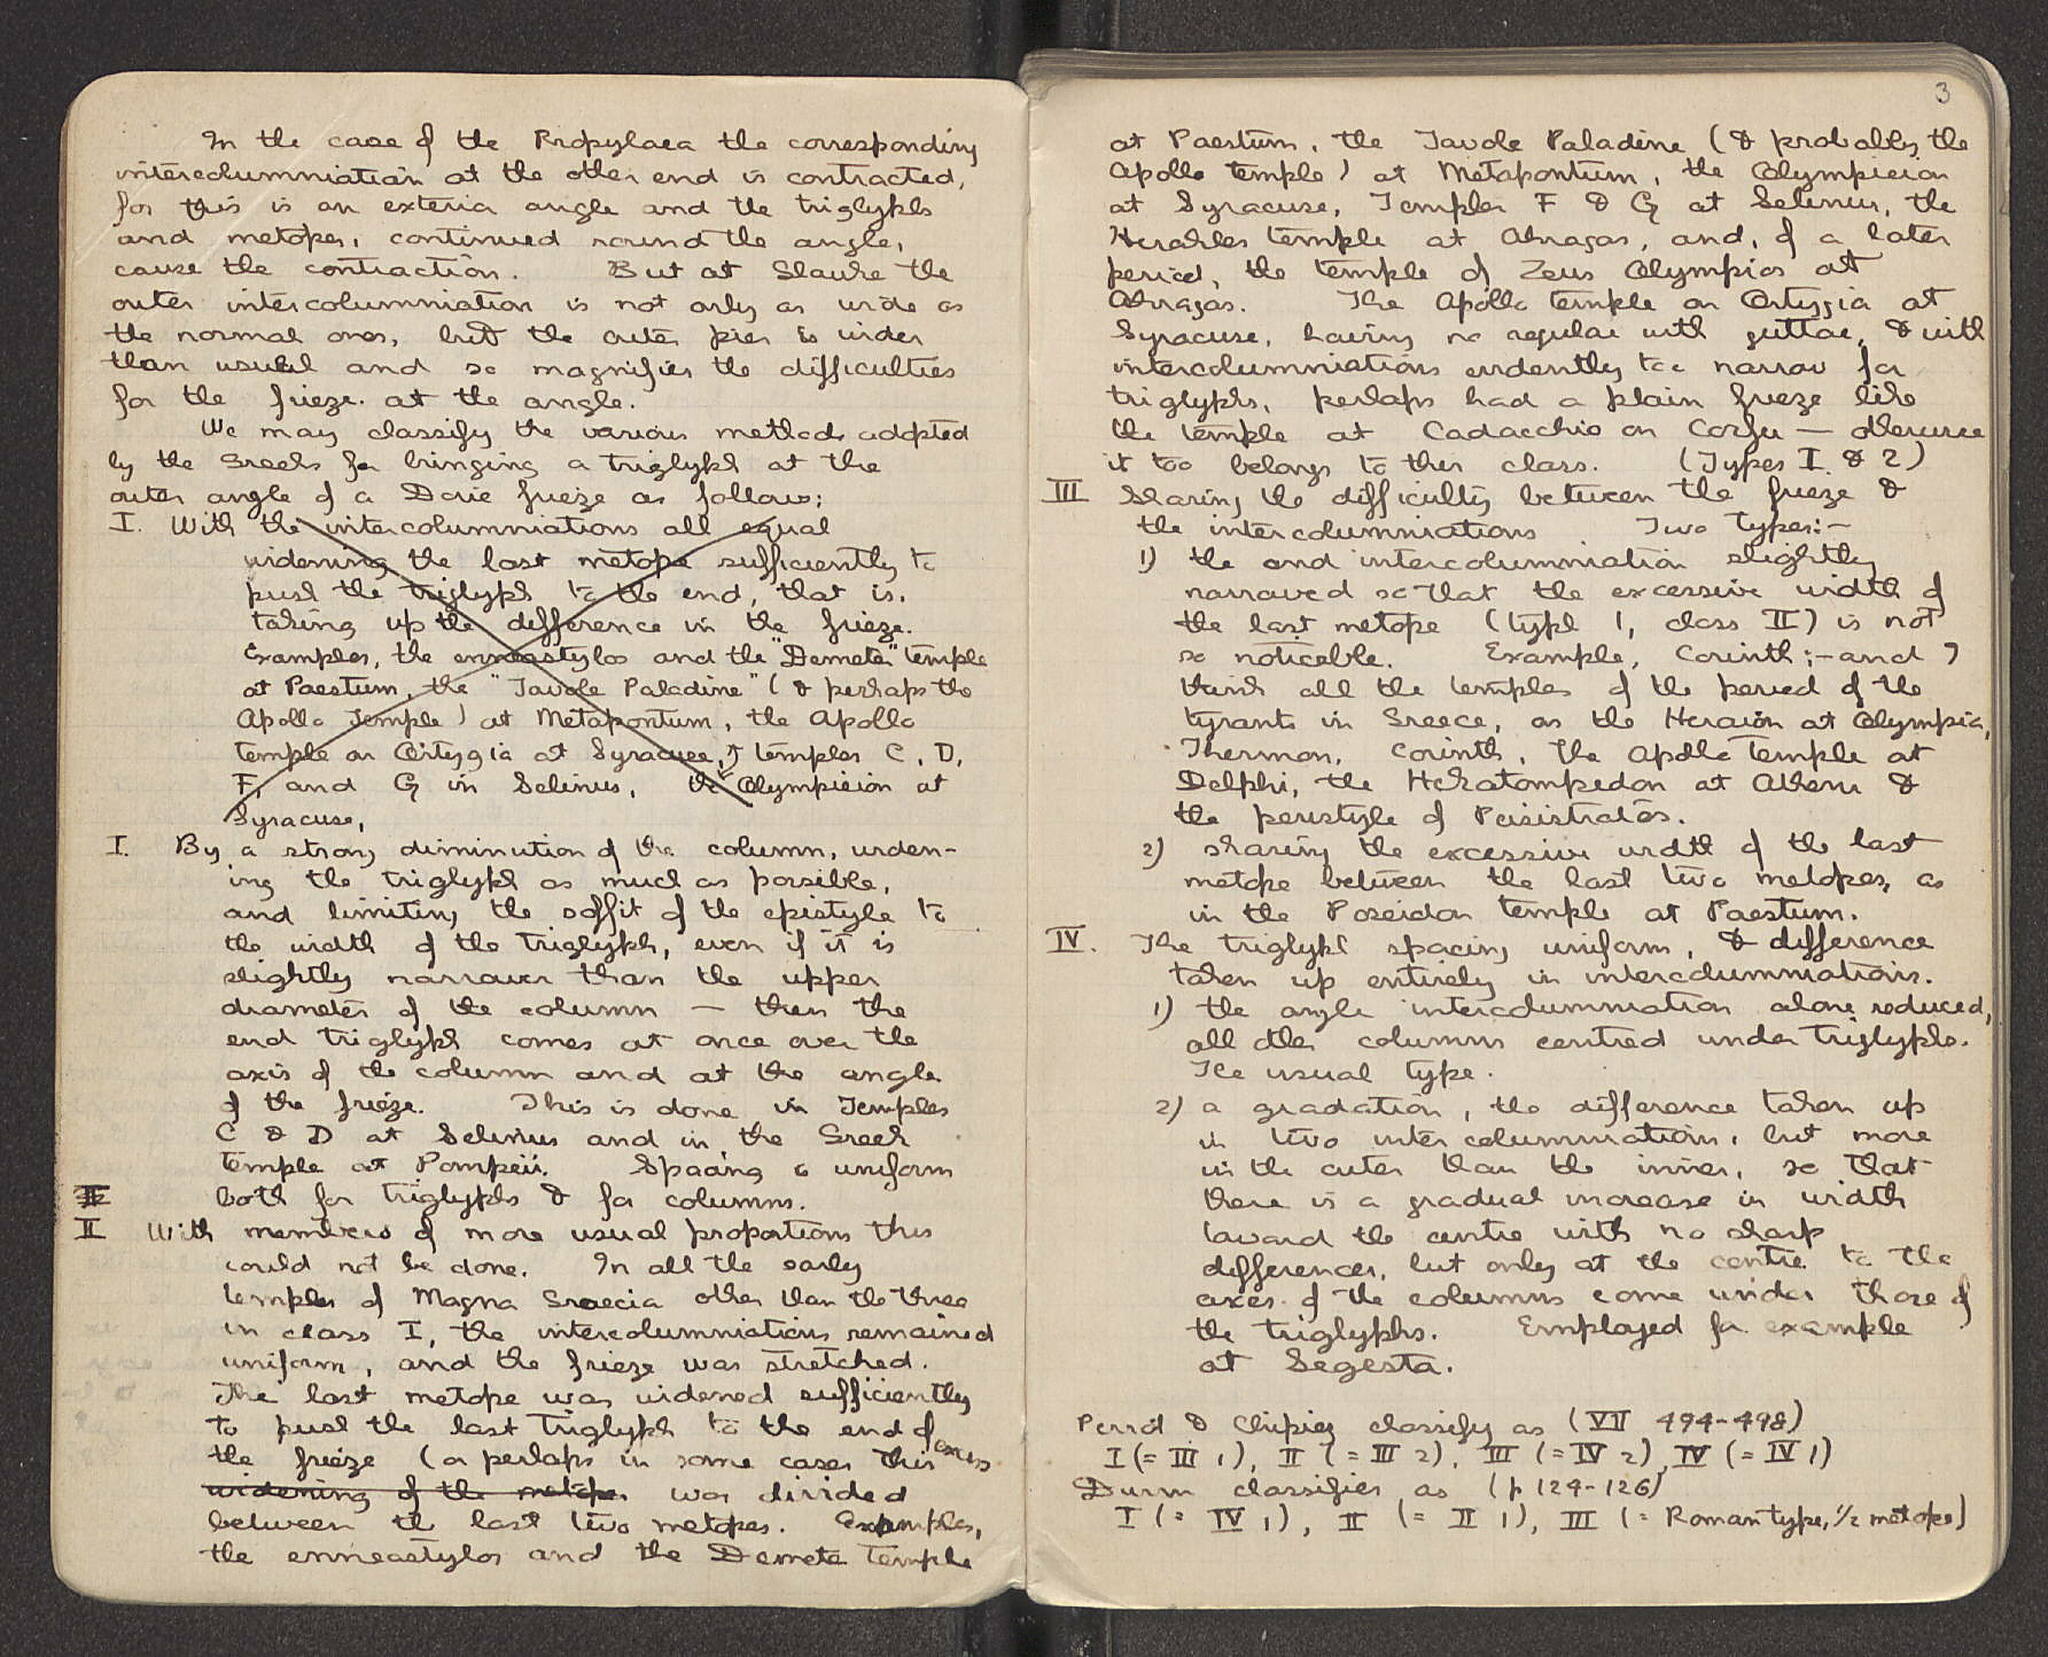 In the case of the Propylaea the corresponding
intercolumniation at the other end is contracted,
for this is an exterior angle and the triglyphs
and metopes, continued round the angle,
cause the contraction. But at the
outer intercolumniation is not only as wide as
the normal ones, but the outer pier is wider
than usual and so magnifies the difficulties
for the frieze at the angle.
We may classify the various methods adopted
by the Greeks for bringing a triglyph at the
outer angle of a Doric frieze as follows:
I. With the intercolumniations all equal
widening the last metope sufficiently to
push the triglyph to the end, that is,
taking up the difference in the frieze.
Examples, the enneastylos and the "Demeter" temple
at Paestum, the "Tavole Paladine" (& perhaps the
Apollo Temple) at Metapontum, the Apollo
temple on Ortygia at Syracuse, temples C, D,
F, and G in Selinus, the Olympieion at
Syracuse,
I. By a strong diminution of the column, widen-
ing the triglyph as much as possible,
and limiting the soffit of the epistyle to
the width of the triglyph, even if it is
slightly narrower than the upper
diameter of the column — then the
end triglyph comes at once over the
axis of the column and at the angle
of the frieze. This is done in Temples
C & D at Selinus and in the Greek
temple at Pompeii. Spacing is uniform
II both for triglyphs & for columns.
II With members of more usual proportions this
could not be done. In all the early
temples of Magna Graecia other than the three
in class I, the intercolumniations remained
uniform, and the frieze was stretched.
The last metope was widened sufficiently
to push the last triglyph to the end of
the frieze (or perhaps in some cases this excess
widening of the metopes was divided
between the last two metopes. Examples,
the enneastylos and the Demeter Temple
3
at Paestum, the Tavole Paladine (& probably the
Apollo temple) at Metapontum, the Olympieion
at Syracuse, Temples F & G at Selinus, the
Herakles temple at Akragas, and, of a later
period, the temple of Zeus Olympios at
Akragas. The Apollo temple on Ortygia at
Syracuse, having no regulae with guttae, & with
intercolumniations evidently too narrow for
triglyphs, perhaps had a plain frieze like
the temple at Cadacchio on Corfu — otherwise
it too belongs to this class. (Types I. & 2)
III Sharing the difficulty between the frieze &
the intercolumniations Two types:—
1) the end intercolumniation slightly
narrowed so that the excessive width of
the last metope (type 1, class II) is not
so noticeable. Example, Corinth:—and I
think all the temples of the period of the
tyrants in Greece, as the Heraion at Olympia,
Thermon, Corinth, the Apollo Temple at
Delphi, the Hekatompedon at Athens &
the peristyle of Peisistratos.
2) sharing the excessive width of the last
metope between the last two metopes, as
in the Poseidon temple at Paestum.
IV. The triglyph spacing uniform, & difference
taken up entirely in intercolumniations.
1) the angle intercolumniation alone reduced,
all other columns centred under triglyphs.
The usual type.
2) a gradation, the difference taken up
in two intercolumniations, but more
in the outer than the inner, so that
there is a gradual increase in width
toward the centre with no sharp
differences, but only at the centre to the
axes of the columns come under those of
the triglyphs. Employed for example
at Segesta.
Perrot & Chipiez classify as (VII 494-498)
I (= III 1), II (= III 2), III (= IV 2), IV (= IV 1)
Durm classifies as (p 124-126)
I (= IV 1), II (= II 1), III (= Roman type, 1/2 metope)